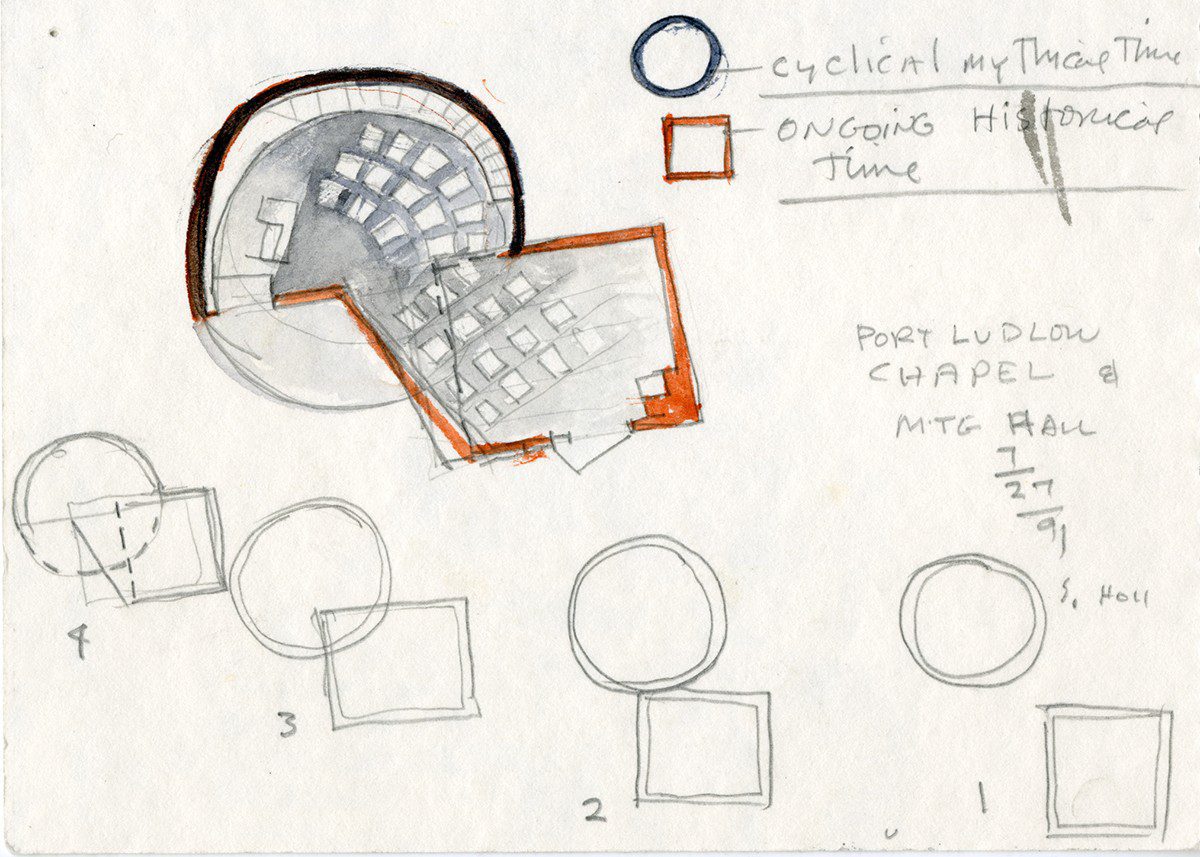 cyclical mythical Time
ONGOING Historical
Time
PORT LUDLOW
CHAPEL &
MTG HALL
7
27
91
S. Holl
4
3
2
1